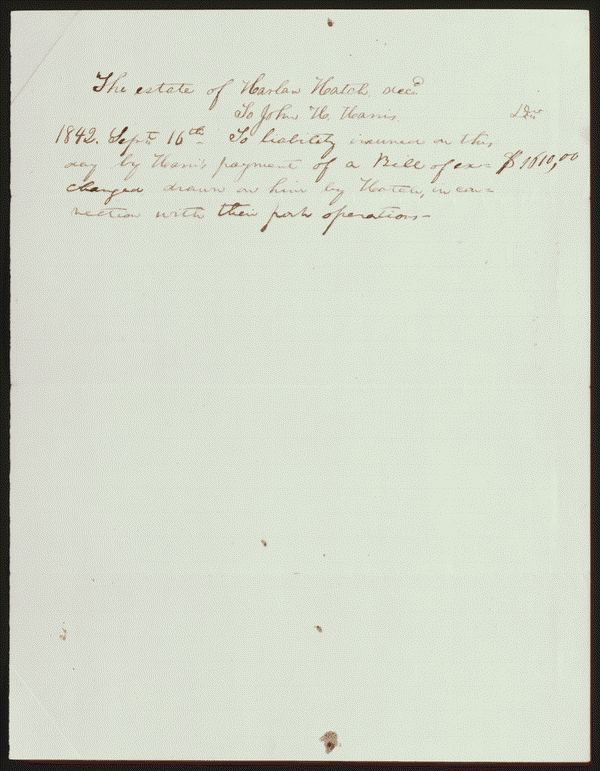 The estate of Harlan Hatch, dec'd
To John H. Harris. Dr
1842. Sept. 16th. To liability incurred on this
day by Harris payment of a Bill of ex= $1610,00
changed drawn on him by Hatch, in con=
nection with their pork operations—